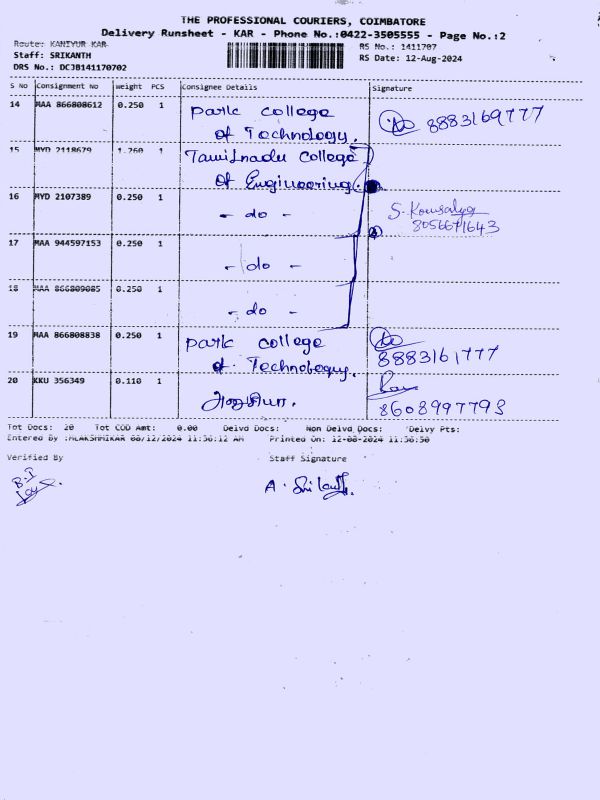 THE PROFESSIONAL COURIERS, COIMBATORE
Delivery Runsheet - KAR - Phone No.:0422-3505555 - Page No.:2
Route: KANIYUR KAR
RS No.: 1411707
Staff: SRIKANTH
RS Date: 12-Aug-2024
DRS No.: DCJB141170702
S No Consignment No weight PCS Consignee Details Signature
14 MAA 866808612 0.250 1 Park college
of Technology. 8883169777
15 MYD 2118679 1.260 1 Tamilnadu College
of Engineering.
16 MYD 2107389 0.250 1 - do - S. Kowsalya
8056671643
17 MAA 944597153 0.250 1 - do -
18 MAA 866809085 0.250 1 - do -
19 MAA 866808838 0.250 1 Park college
of. Technology. 8883161777
20 KKU 356349 0.110 1
8608997793
Tot Docs: 20 Tot COD Amt: 0.00 Delvd Docs: Non Delvd Docs: Delvy Pts:
Entered By :MLAKSHMIKAR 08/12/2024 11:56:12 AM Printed On: 12-08-2024 11:56:50
Verified By Staff Signature